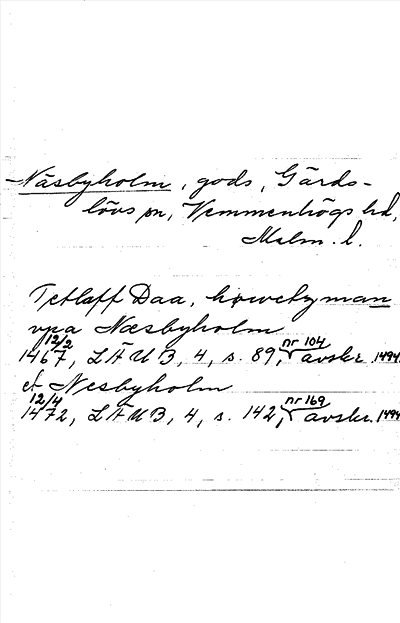 Näsbyholm, gods, Gärds-
lövs sn, Vemmenhögs hd,
Malm. l.
Tetlaff Daa, høwetzman
vpa Næsbyholm
12/2 nr 104
1467, LÄUB, 4, s. 89, avskr. 1494
af Nesbyholm
12/4 nr 169
1472, LÄUB, 4, s. 142, avskr. 1494